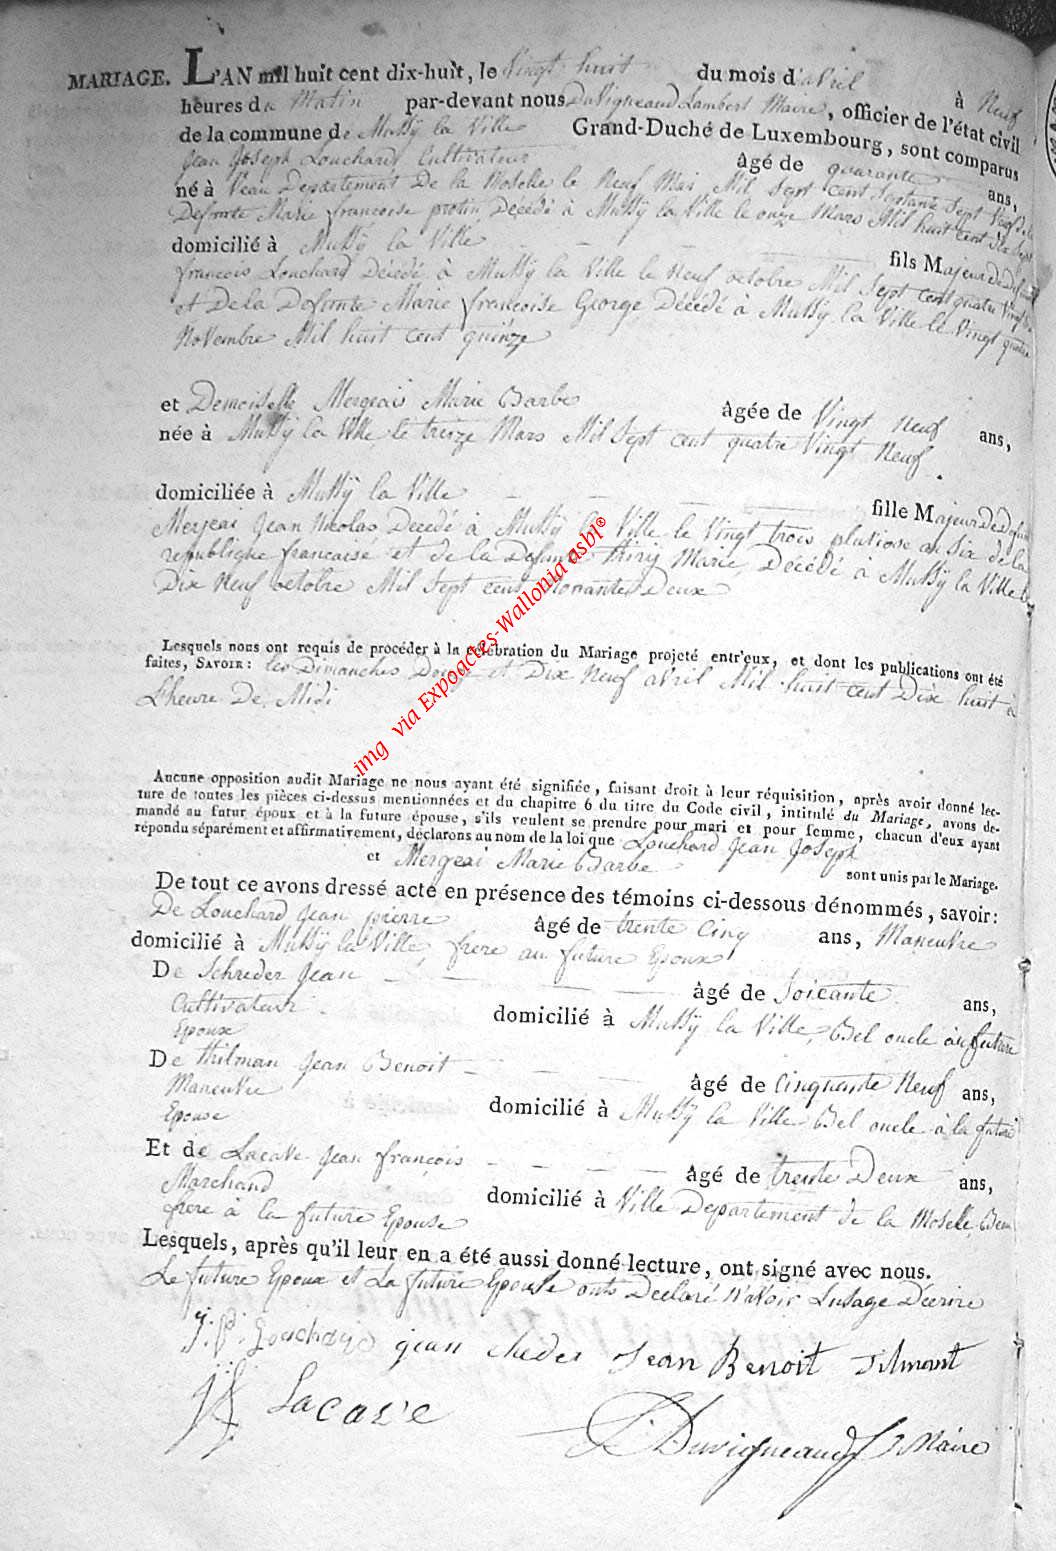 MARIAGE. L'AN mil huit cent dix-huit, le Vingt huit du mois d'avril à Neuf
heures du Matin par-devant nous Duvigneaud Lambert Maire, officier de l'état civil
de la commune de Mussÿ la Ville Grand-Duché de Luxembourg, sont comparus
Jean Joseph Louchard Cultivateur âgé de quarante ans,
né à Veau Departement De la Moselle le Neuf Mai Mil Sept cent Septante Sept Veuf de la
Defonte Marie francoise protin Decédé à Mussÿ la Ville le onze Mars Mil huit cent dix Sept
domicilié à Mussÿ la Ville fils Majeur de Defunt
francois Louchard Décédé à Mussÿ la Ville le Neuf octobre Mil Sept cent quatre Vingt
et De la Defonte Marie francoise George Décédé à Mussÿ la Ville le Vingt quatre
Novembre Mil huit cent quinze
et Demoiselle Mergeais Marie Barbe âgée de Vingt Neuf ans,
née à Mussÿ la Ville le treize Mars Mil Sept cent quatre Vingt Neuf.
domiciliée à Mussÿ la Ville fille Majeur De Defunt
Merjeai Jean Nicolas Decédé à Mussÿ la Ville le Vingt trois pluviose an Six de la
republique francaise et de la Defunte thiry Marie, Décédé à Mussÿ la Ville le
Dix Neuf octobre Mil Sept cent Nonante Deux
Lesquels nous ont requis de procéder à la célébration du Mariage projeté entr'eux, et dont les publications ont été
faites, SAVOIR : les Dimanches Douze et Dix Neuf avril Mil huit cent Dix huit à
L'heure De Midi
Aucune opposition audit Mariage ne nous ayant été signifiée, faisant droit à leur réquisition, après avoir donné lec-
ture de toutes les pièces ci-dessus mentionnées et du chapitre 6 du titre du Code civil, intitulé du Mariage, avons de-
mandé au futur époux et à la future épouse, s'ils veulent se prendre pour mari et pour femme, chacun d'eux ayant
répondu séparément et affirmativement, déclarons au nom de la loi que Louchard Jean Joseph
et Mergeai Marie Barbe sont unis par le Mariage.
De tout ce avons dressé acte en présence des témoins ci-dessous dénommés, savoir :
De Louchard Jean pierre âgé de trente Cinq ans, Maneuvre
domicilié à Mussÿ la Ville, frere au future Epoux
De Schreder Jean âgé de Soicante ans,
Cultivateur domicilié à Mussÿ la Ville, Bel oncle au future
Epoux
De thilman Jean Benoit âgé de Cinquante Neuf ans,
Maneuvre domicilié à Mussÿ la Ville Bel oncle à la future
Epouse
Et de Lacave Jean francois âgé de trente Deux ans,
Marchand domicilié à Ville Departement de la Moselle, Beau
frere à la future Epouse
Lesquels, après qu'il leur en a été aussi donné lecture, ont signé avec nous.
Le future Epoux et La future Epouse onts Déclaré N'avoir Lusage Décrire
J. P. Louchard jean cheder Jean Benoit Tilmont
J f Lacave L. Duvigneaud Maire
img via Expoactes-Wallonia asbl®